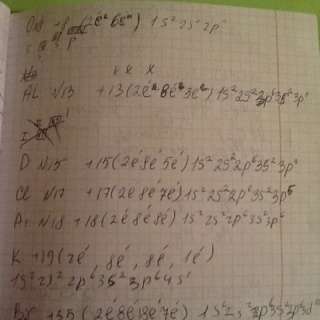 +8 (2e 6e) 1s² 2s² 2p
x x x
AL N13 +13 (2e 8e 3e) 1s² 2s² 2p⁶ 3s² 3p
N15 +15 (2e 8e 5e) 1s² 2s² 2p⁶ 3s² 3p³
Cl N17 +17 (2e 8e 7e) 1s² 2s² 2p⁶ 3s² 3p⁵
Ar N18 +18 (2e 8e 8e) 1s² 2s² 2p⁶ 3s² 3p⁶
K +19 (2e, 8e, 8e, 1e)
1s² 2s² 2p⁶ 3s² 3p⁶ 4s¹
Br +35 (2e 8e 18e 7e) 1s² 2s² 2p⁶ 3s² 3p⁶ 3d